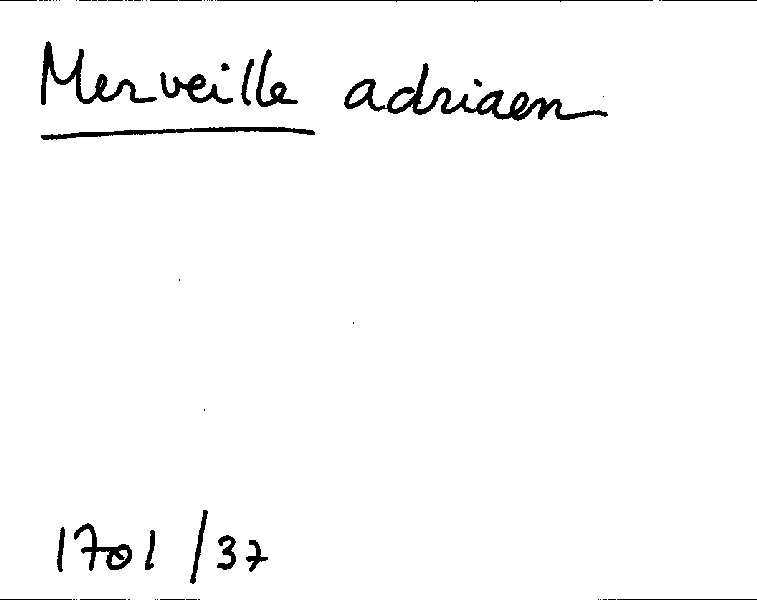 Merveille adriaen
1701 /37